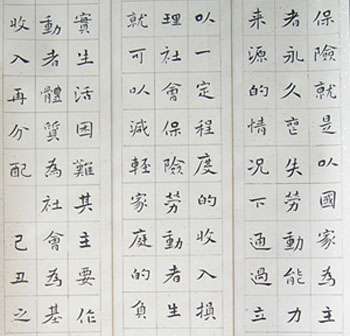 保險就是以國家為主
者永久喪失勞動能力
来源的情況下通過立
以一定程度的收入損
理社會保險勞動者生
就可以減輕家庭的負
實生活困難其主要作
動者體質為社會為基
收入再分配 己丑之